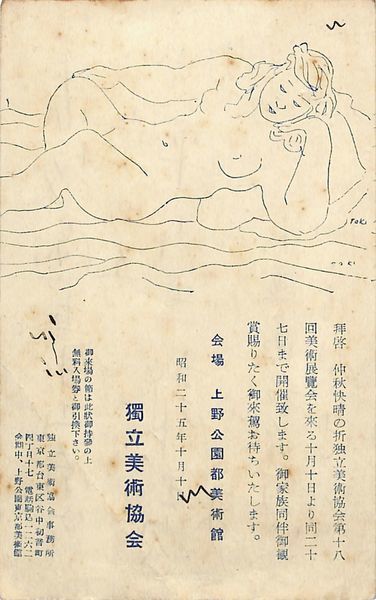 拝啓 仲秋快晴の折独立美術協会第十八
回美術展覽会を來る十月十日より同二十
七日まで開催致します。御家族同伴御観
賞賜りたく御來駕お待ちいたします。
会場 上野公園都美術館
昭和二十五年十月十日
獨立美術協会
御來場の節は此狀御持參の上
無料入場券と御引換下さい。
独立美術協会事務所
東京都台東区谷中初音町
四丁目 電話駒込
会期中・上野公園東京都美術館